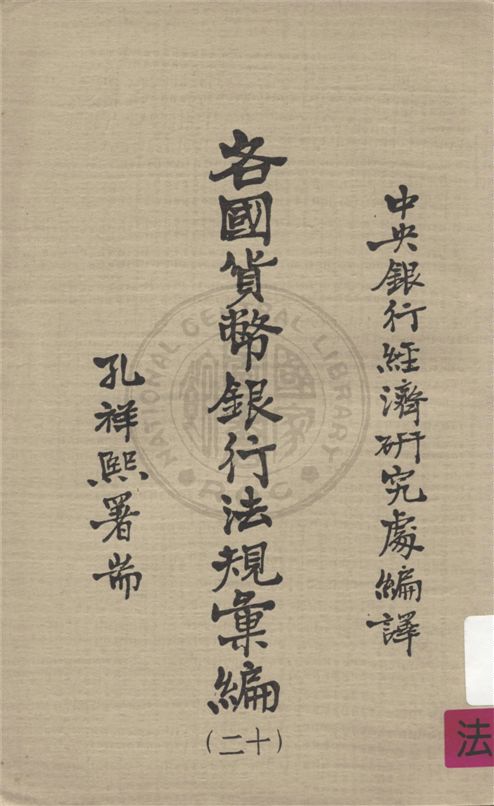 中央銀行經濟研究處編譯
各國貨幣銀行法規彙編
(二十)
孔祥熙署耑
NATIONAL CENTRAL LIBRARY
法